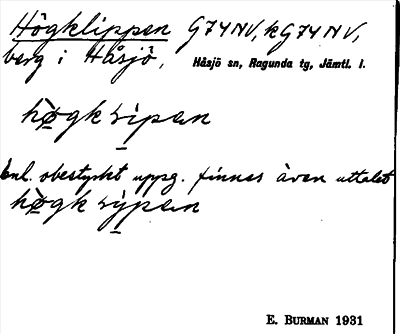 Högklippen G74NV, kG74NV,
berg i Håsjö, Håsjö sn, Ragunda tg, Jämtl. l.
enl. obestyrkt uppg. finnes även uttalet
E. BURMAN 1931